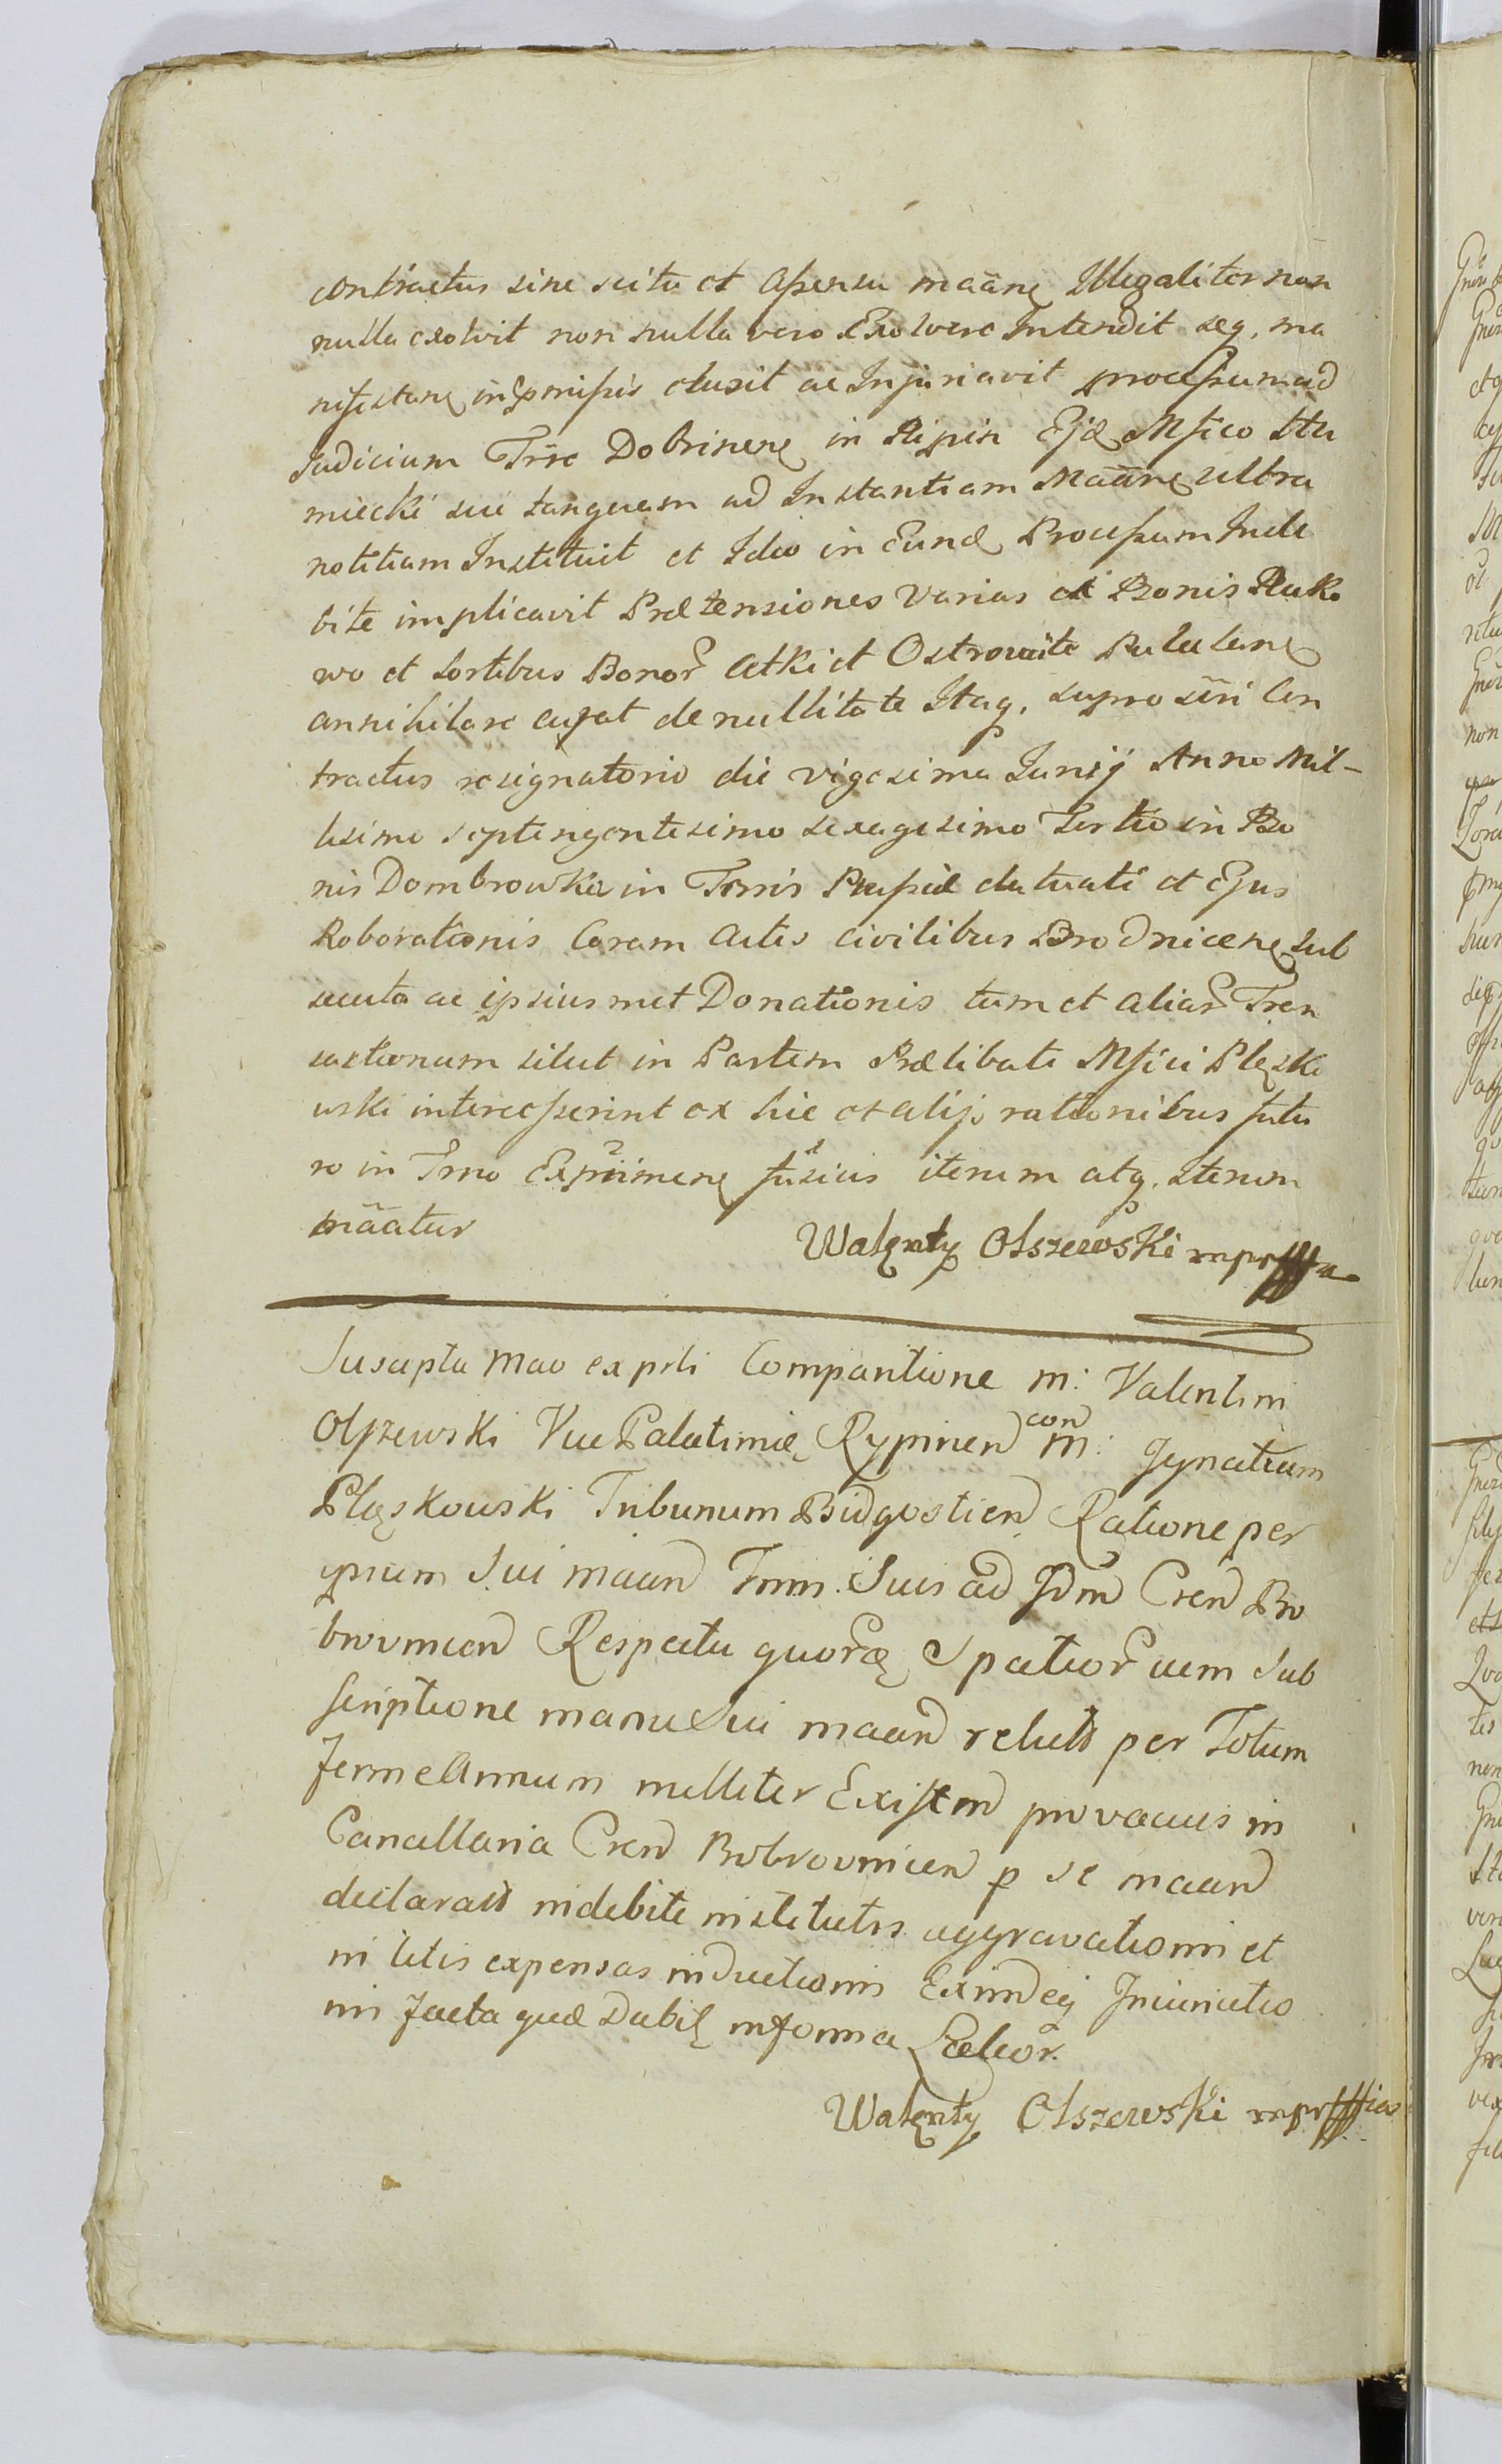 contractus sine scitu et assensu maane Illegaliter non
nulla exolvit non nulla vero Exolvere Intendit seq. ma
nifestane in pmissis elusit ac Injuriavit processum ad
Judicium Trre Dobrinene in Ripin Ejd Msico Stu
miecki sui tanquam ad Instantiam Maane ultra
notitiam Instituit et Ideo in Eund Processum Inde
bite implicavit Prætensiones varias ex Bonis Ruko
wo et Sortibus Bonor Cetki et Ostrowite Pululane
annihilare curat de nullitate Itaq. supro seri Con
tractus resignatorio die vigesima Junij Anno Mil-
lesimo septengentesimo sexagesimo Tertio in Bo
nis Dombrowka in Terris Prussiæ clatuati et Ejus
Roborationis Coram Actis civilibus Brodnicene sub
secuta ac ipsius met Donationis tum et aliar Tran
sactionum silut in Partem Prælibati Msici Plęsko
wski intercesserint ex hic et alijs rationibus futu
ro in Tmo Exprimene fusius iterum atq. iterum
mãatur
Walęnty Olszewski mpr
Suscepta Mao ex prli Comparitione M: Valentini
Olszewski Vice Palatini Rypinen con M: Ignatium
Pląskowski Tribunum Bidgostien Ratione per
ipsum Sui maan Tmin. Suis ad Idm Cren Bo
brovnicen Respectu quorq Spatior cum Sub
scriptione manu Sui maan relicti per Totum
ferme Annum nulliter Existen pro vacuis in
Cancellaria Cren Bobrovnicen p se maan
declarati indebite institutis aggravationi et
in litis expensas inductionis Eximdeq Iniuriatio
ni facta quæ Dabit in forma Latior.
Walęnty Olszewski mpr